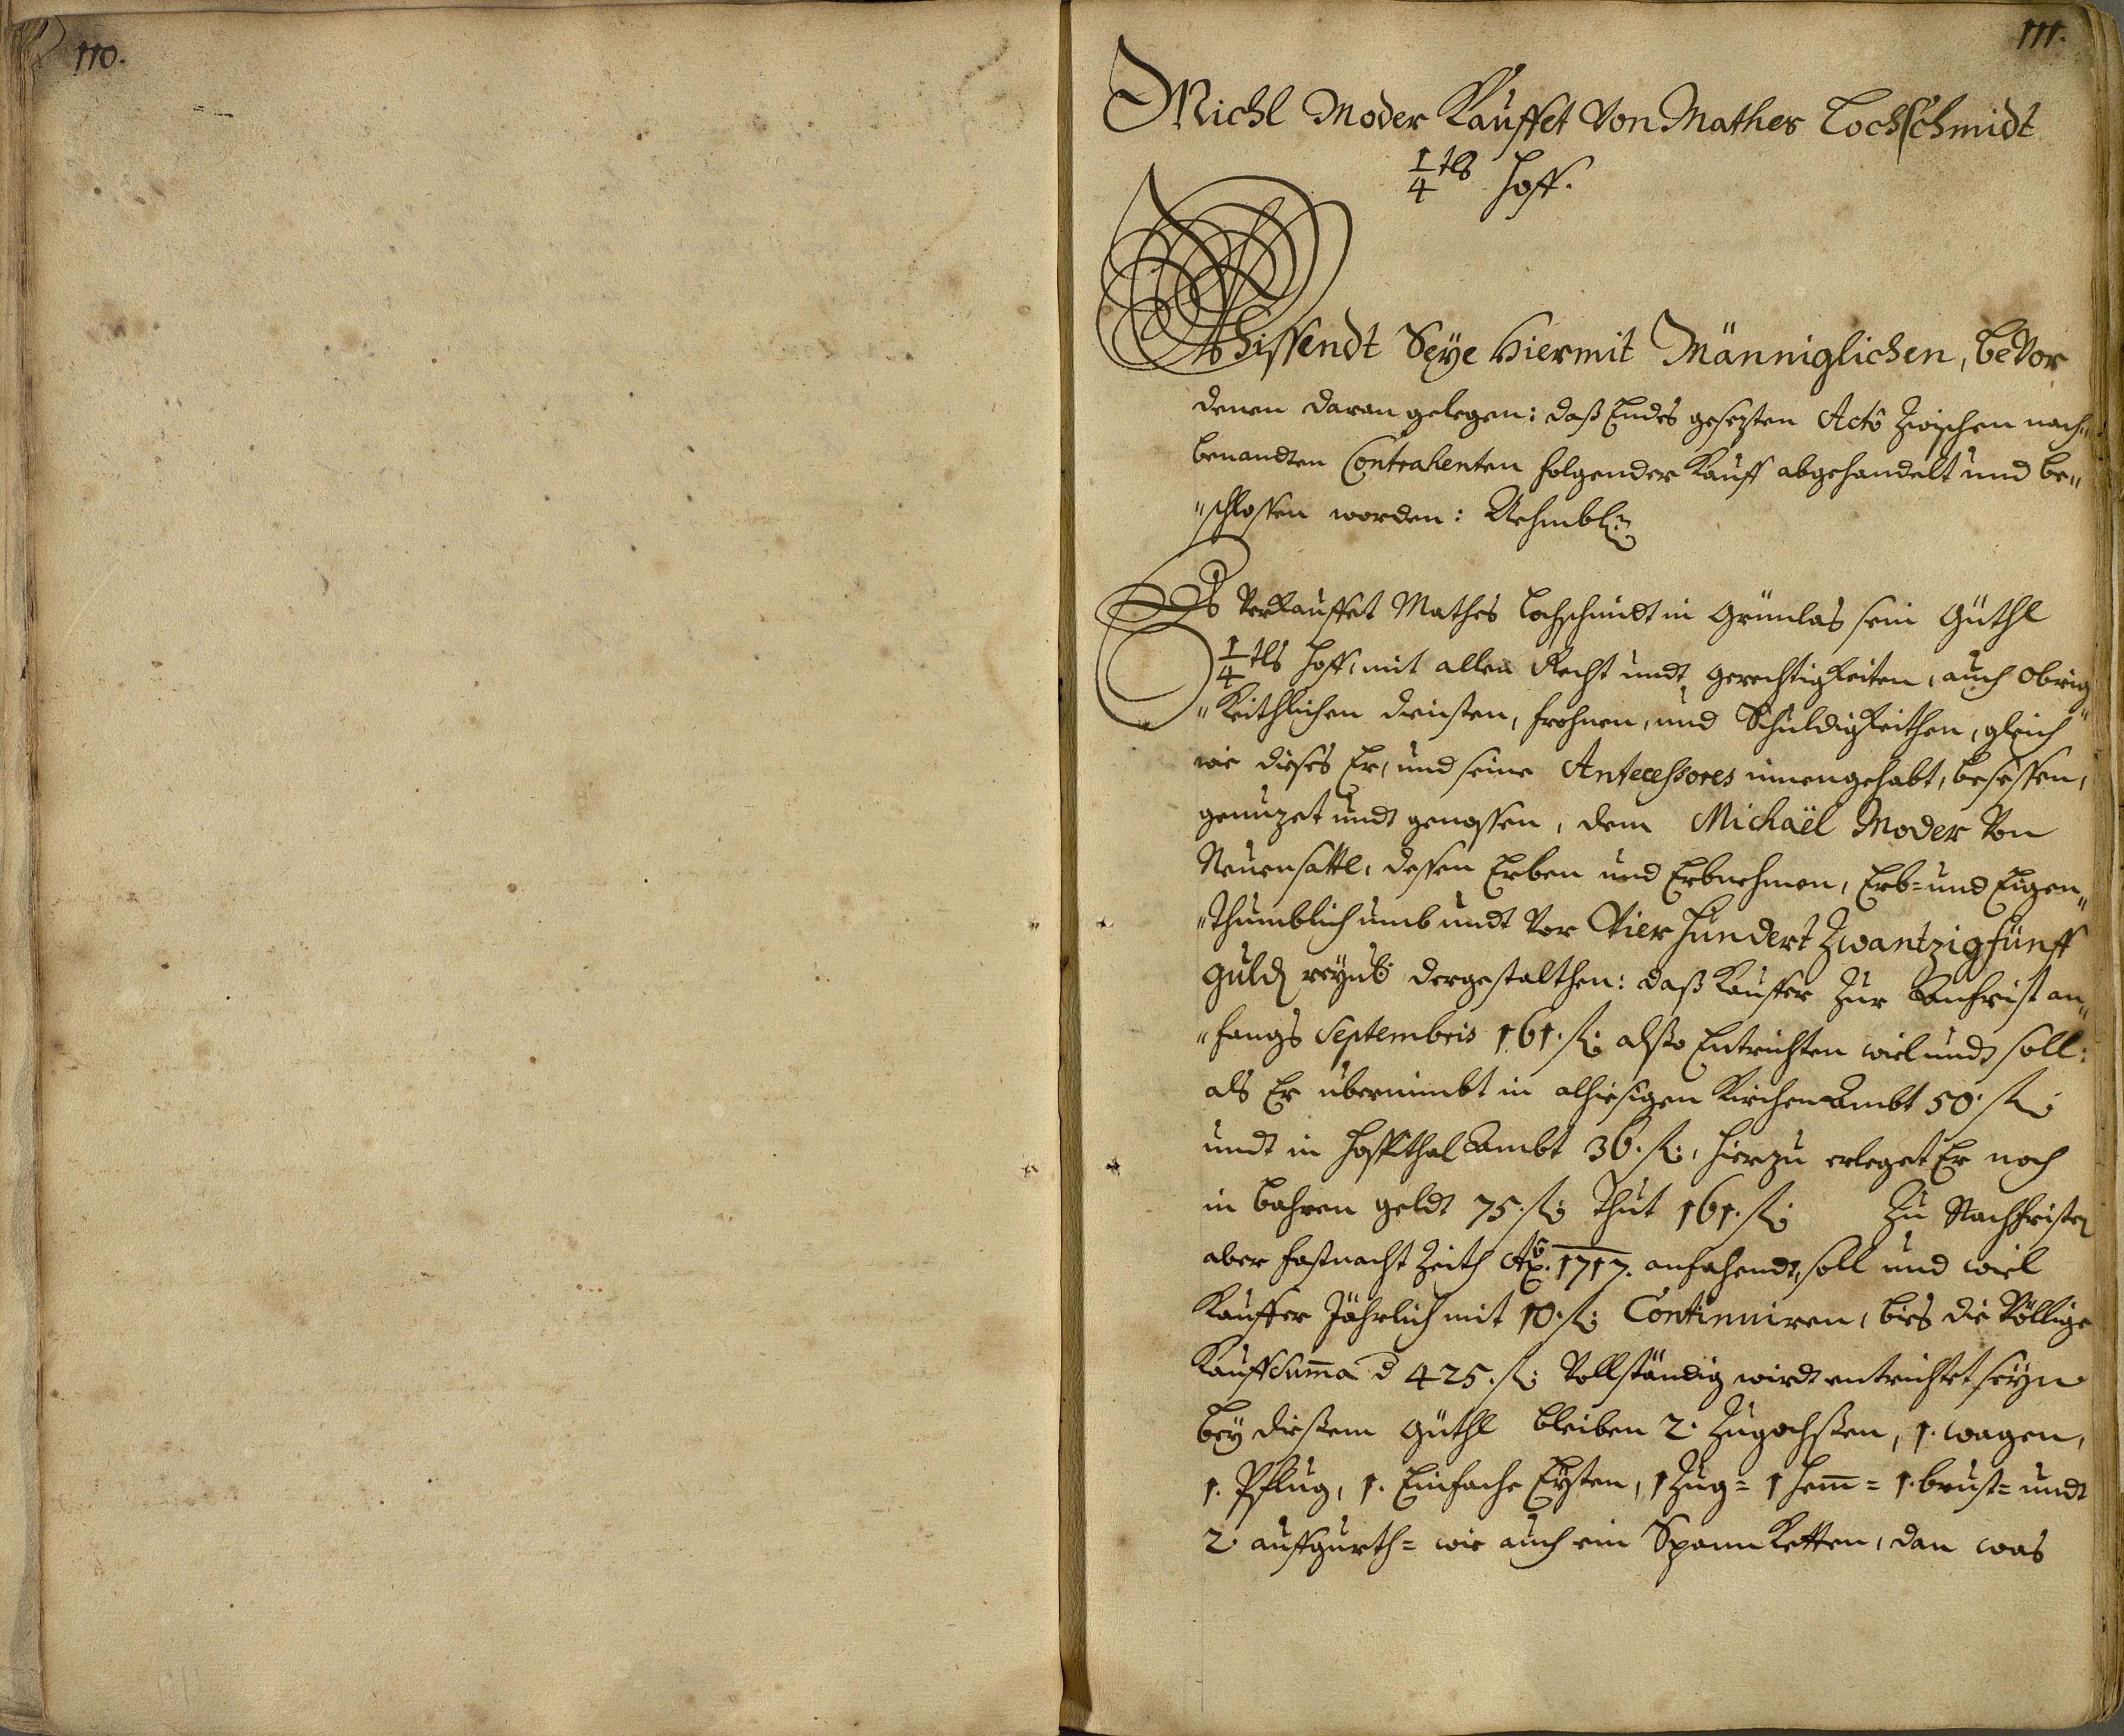 110.
111.
Michl Moder Kauffet Von Mathes Lochschmidt
1/4 tls Hoff.
Wissendt Seye Hiermit Männiglichen, beVor
denen daran gelegen: daß Endes gesezten Actô Zwischen nach„
benandten Contrahenten folgender Kauff abgehandelt und be„
„schlossen worden: Nehmbl:
Es Verkauffet Mathes Lochschmidt in Grünlas sein Güthl
1/4 tls Hoff, mit allen Recht undt gerechtigkeiten, auch Obrig„
„Keithlichen diensten, frohnen, und Schuldigkeithen, gleich
wie dieses Er, und seine Antecessores innengehabt, besessen,
genuzet undt genossen, dem Michaël Moder Von
Neuensattl, dessen Erben und Erbnehmen, Erb= und Eigen„
„thumblich umb undt Vor Vier Hundert Zwantzig fünff
guld reynl: dergestalthen: daß Kauffer Zur Anfrist an„
„fangs Septembris 161. fl: alßo Entrichten wiel undt soll:
als Er übernimbt in alhiesigen Kirchen Ambt 50. fl:
undt in Hospithal Ambt 36. fl:, hierzu erleget Er noch
in bahren geldt 75. fl: thut 161. fl: Zu Nachfristen
aber fastnacht Zeith Aõ. 1717. anfahendt, soll und wiel
Kauffer Jährlich mit 10. fl: Continuiren, bies die Völlige
Kauffsuma d 425. fl: Vollständig wirdt entrichtet seyn
bey dießem Güthl bleiben 2. Zugochßen, 1. wagen,
1. Pflug, 1. Einfache Eyten, 1 Zug= 1 Hem= 1. brust= undt
2. auffgurth= wie auch ein Spann Ketten, dan was